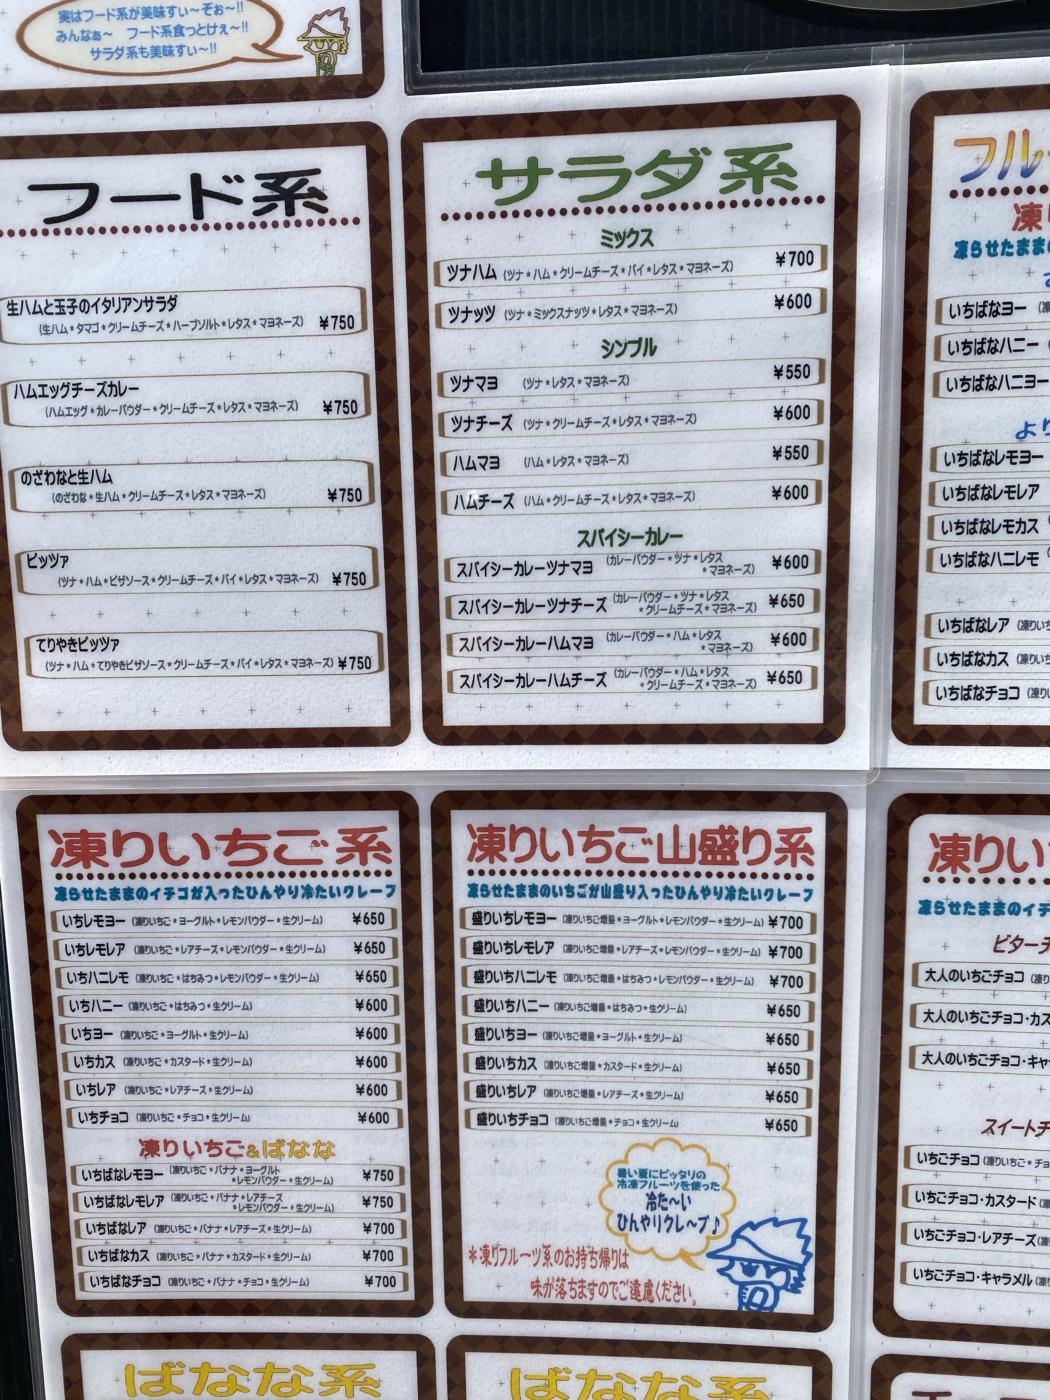 実はフード系が美味すぃ～ぞぉ～!!
みんなぁ～ フード系食っとけぇ～!!
サラダ系も美味すぃ～!!
フード系
生ハムと玉子のイタリアンサラダ
(生ハム*タマゴ*クリームチーズ*ハーブソルト*レタス*マヨネーズ) ¥750
ハムエッグチーズカレー
(ハムエッグ*カレーパウダー*クリームチーズ*レタス*マヨネーズ) ¥750
のざわなと生ハム
(のざわな*生ハム*クリームチーズ*レタス*マヨネーズ) ¥750
ピッツァ
(ツナ*ハム*ピザソース*クリームチーズ*パイ*レタス*マヨネーズ) ¥750
てりやきピッツァ
(ツナ*ハム*てりやきピザソース*クリームチーズ*パイ*レタス*マヨネーズ) ¥750
サラダ系
ミックス
ツナハム (ツナ*ハム*クリームチーズ*パイ*レタス*マヨネーズ) ¥700
ツナッツ (ツナ*ミックスナッツ*レタス*マヨネーズ) ¥600
シンプル
ツナマヨ (ツナ*レタス*マヨネーズ) ¥550
ツナチーズ (ツナ*クリームチーズ*レタス*マヨネーズ) ¥600
ハムマヨ (ハム*レタス*マヨネーズ) ¥550
ハムチーズ (ハム*クリームチーズ*レタス*マヨネーズ) ¥600
スパイシーカレー
スパイシーカレーツナマヨ (カレーパウダー*ツナ*レタス
*マヨネーズ) ¥600
スパイシーカレーツナチーズ (カレーパウダー*ツナ*レタス
*クリームチーズ*マヨネーズ) ¥650
スパイシーカレーハムマヨ (カレーパウダー*ハム*レタス
*マヨネーズ) ¥600
スパイシーカレーハムチーズ (カレーパウダー*ハム*レタス
*クリームチーズ*マヨネーズ) ¥650
フル
凍
凍らせたまま
いちばなヨー
いちばなハニー
いちばなハニヨー
よ
いちばなレモヨー
いちばなレモレア
いちばなレモカス
いちばなハニレモ
いちばなレア (凍りいち
いちばなカス (凍りいち
いちばなチョコ (凍りい
凍りいちご系
凍らせたままのイチゴが入ったひんやり冷たいクレープ
いちレモヨー (凍りいちご*ヨーグルト*レモンパウダー*生クリーム) ¥650
いちレモレア (凍りいちご*レアチーズ*レモンパウダー*生クリーム) ¥650
いちハニレモ (凍りいちご*はちみつ*レモンパウダー*生クリーム) ¥650
いちハニー (凍りいちご*はちみつ*生クリーム) ¥600
いちヨー (凍りいちご*ヨーグルト*生クリーム) ¥600
いちカス (凍りいちご*カスタード*生クリーム) ¥600
いちレア (凍りいちご*レアチーズ*生クリーム) ¥600
いちチョコ (凍りいちご*チョコ*生クリーム) ¥600
凍りいちご&ばなな
いちばなレモヨー (凍りいちご*バナナ*ヨーグルト
*レモンパウダー*生クリーム) ¥750
いちばなレモレア (凍りいちご*バナナ*レアチーズ
*レモンパウダー*生クリーム) ¥750
いちばなレア (凍りいちご*バナナ*レアチーズ*生クリーム) ¥700
いちばなカス (凍りいちご*バナナ*カスタード*生クリーム) ¥700
いちばなチョコ (凍りいちご*バナナ*チョコ*生クリーム) ¥700
凍りいちご山盛り系
凍らせたままのいちごが山盛り入ったひんやり冷たいクレープ
盛りいちレモヨー (凍りいちご増量*ヨーグルト*レモンパウダー*生クリーム) ¥700
盛りいちレモレア (凍りいちご増量*レアチーズ*レモンパウダー*生クリーム) ¥700
盛りいちハニレモ (凍りいちご増量*はちみつ*レモンパウダー*生クリーム) ¥700
盛りいちハニー (凍りいちご増量*はちみつ*生クリーム) ¥650
盛りいちヨー (凍りいちご増量*ヨーグルト*生クリーム) ¥650
盛りいちカス (凍りいちご増量*カスタード*生クリーム) ¥650
盛りいちレア (凍りいちご増量*レアチーズ*生クリーム) ¥650
盛りいちチョコ (凍りいちご増量*チョコ*生クリーム) ¥650
暑い夏にピッタリの
冷凍フルーツを使った
冷た～い
ひんやりクレープ♪
*凍りフルーツ系のお持ち帰りは
味が落ちますのでご遠慮ください。
凍りい
凍らせたままのイチ
ビターチ
大人のいちごチョコ (凍り
大人のいちごチョコ・カス
大人のいちごチョコ・キャ
スイートチ
いちごチョコ (凍りいちご*チョ
いちごチョコ・カスタード (凍
いちごチョコ・レアチーズ (凍
いちごチョコ・キャラメル (凍
ばなな系
ばなな系